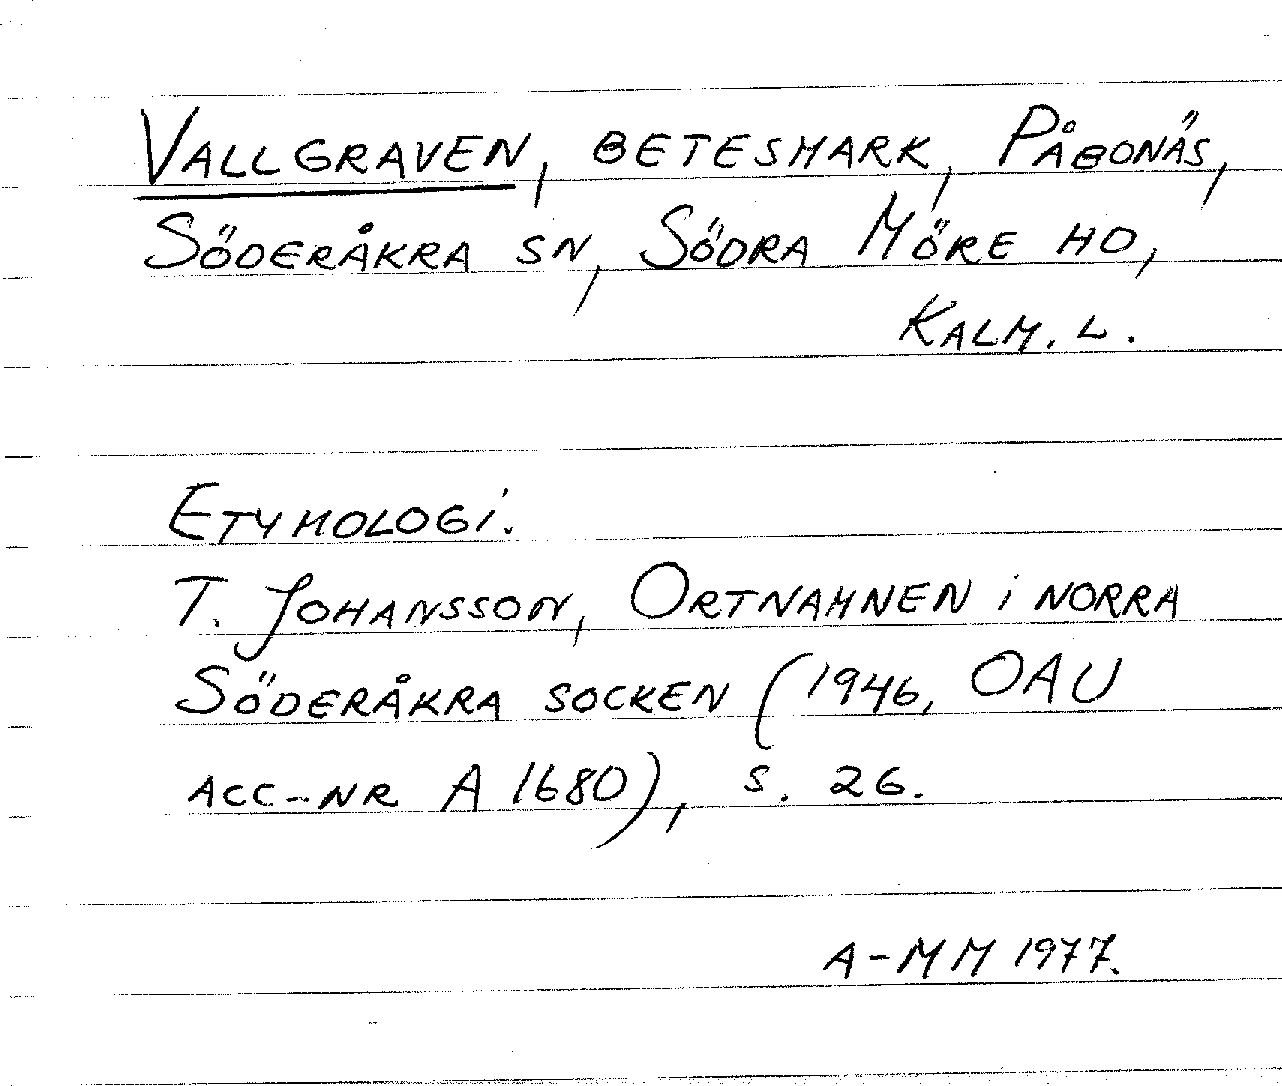 VALLGRAVEN, BETESMARK, PÅBONÄS,
SÖDERÅKRA SN, SÖDRA MÖRE HD,
KALM. L.
ETYMOLOGI.
T. JOHANSSON, ORTNAMNEN I NORRA
SÖDERÅKRA SOCKEN (1946, OAU
ACC-NR A 1680), S. 26.
A-MM 1977.